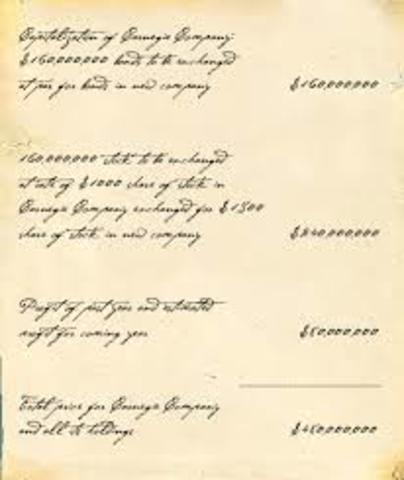 Capitalization of Carnegie Company:
$160,000,000 bonds to be exchanged
at par for bonds in new company $160,000,000
160,000,000 stock to be exchanged
at rate of $1000 share of stock in
Carnegie Company exchanged for $1500
share of stock in new company $240,000,000
Profit of past year and estimated
profit for coming year $80,000,000
Total price for Carnegie Company
and all its holdings $480,000,000